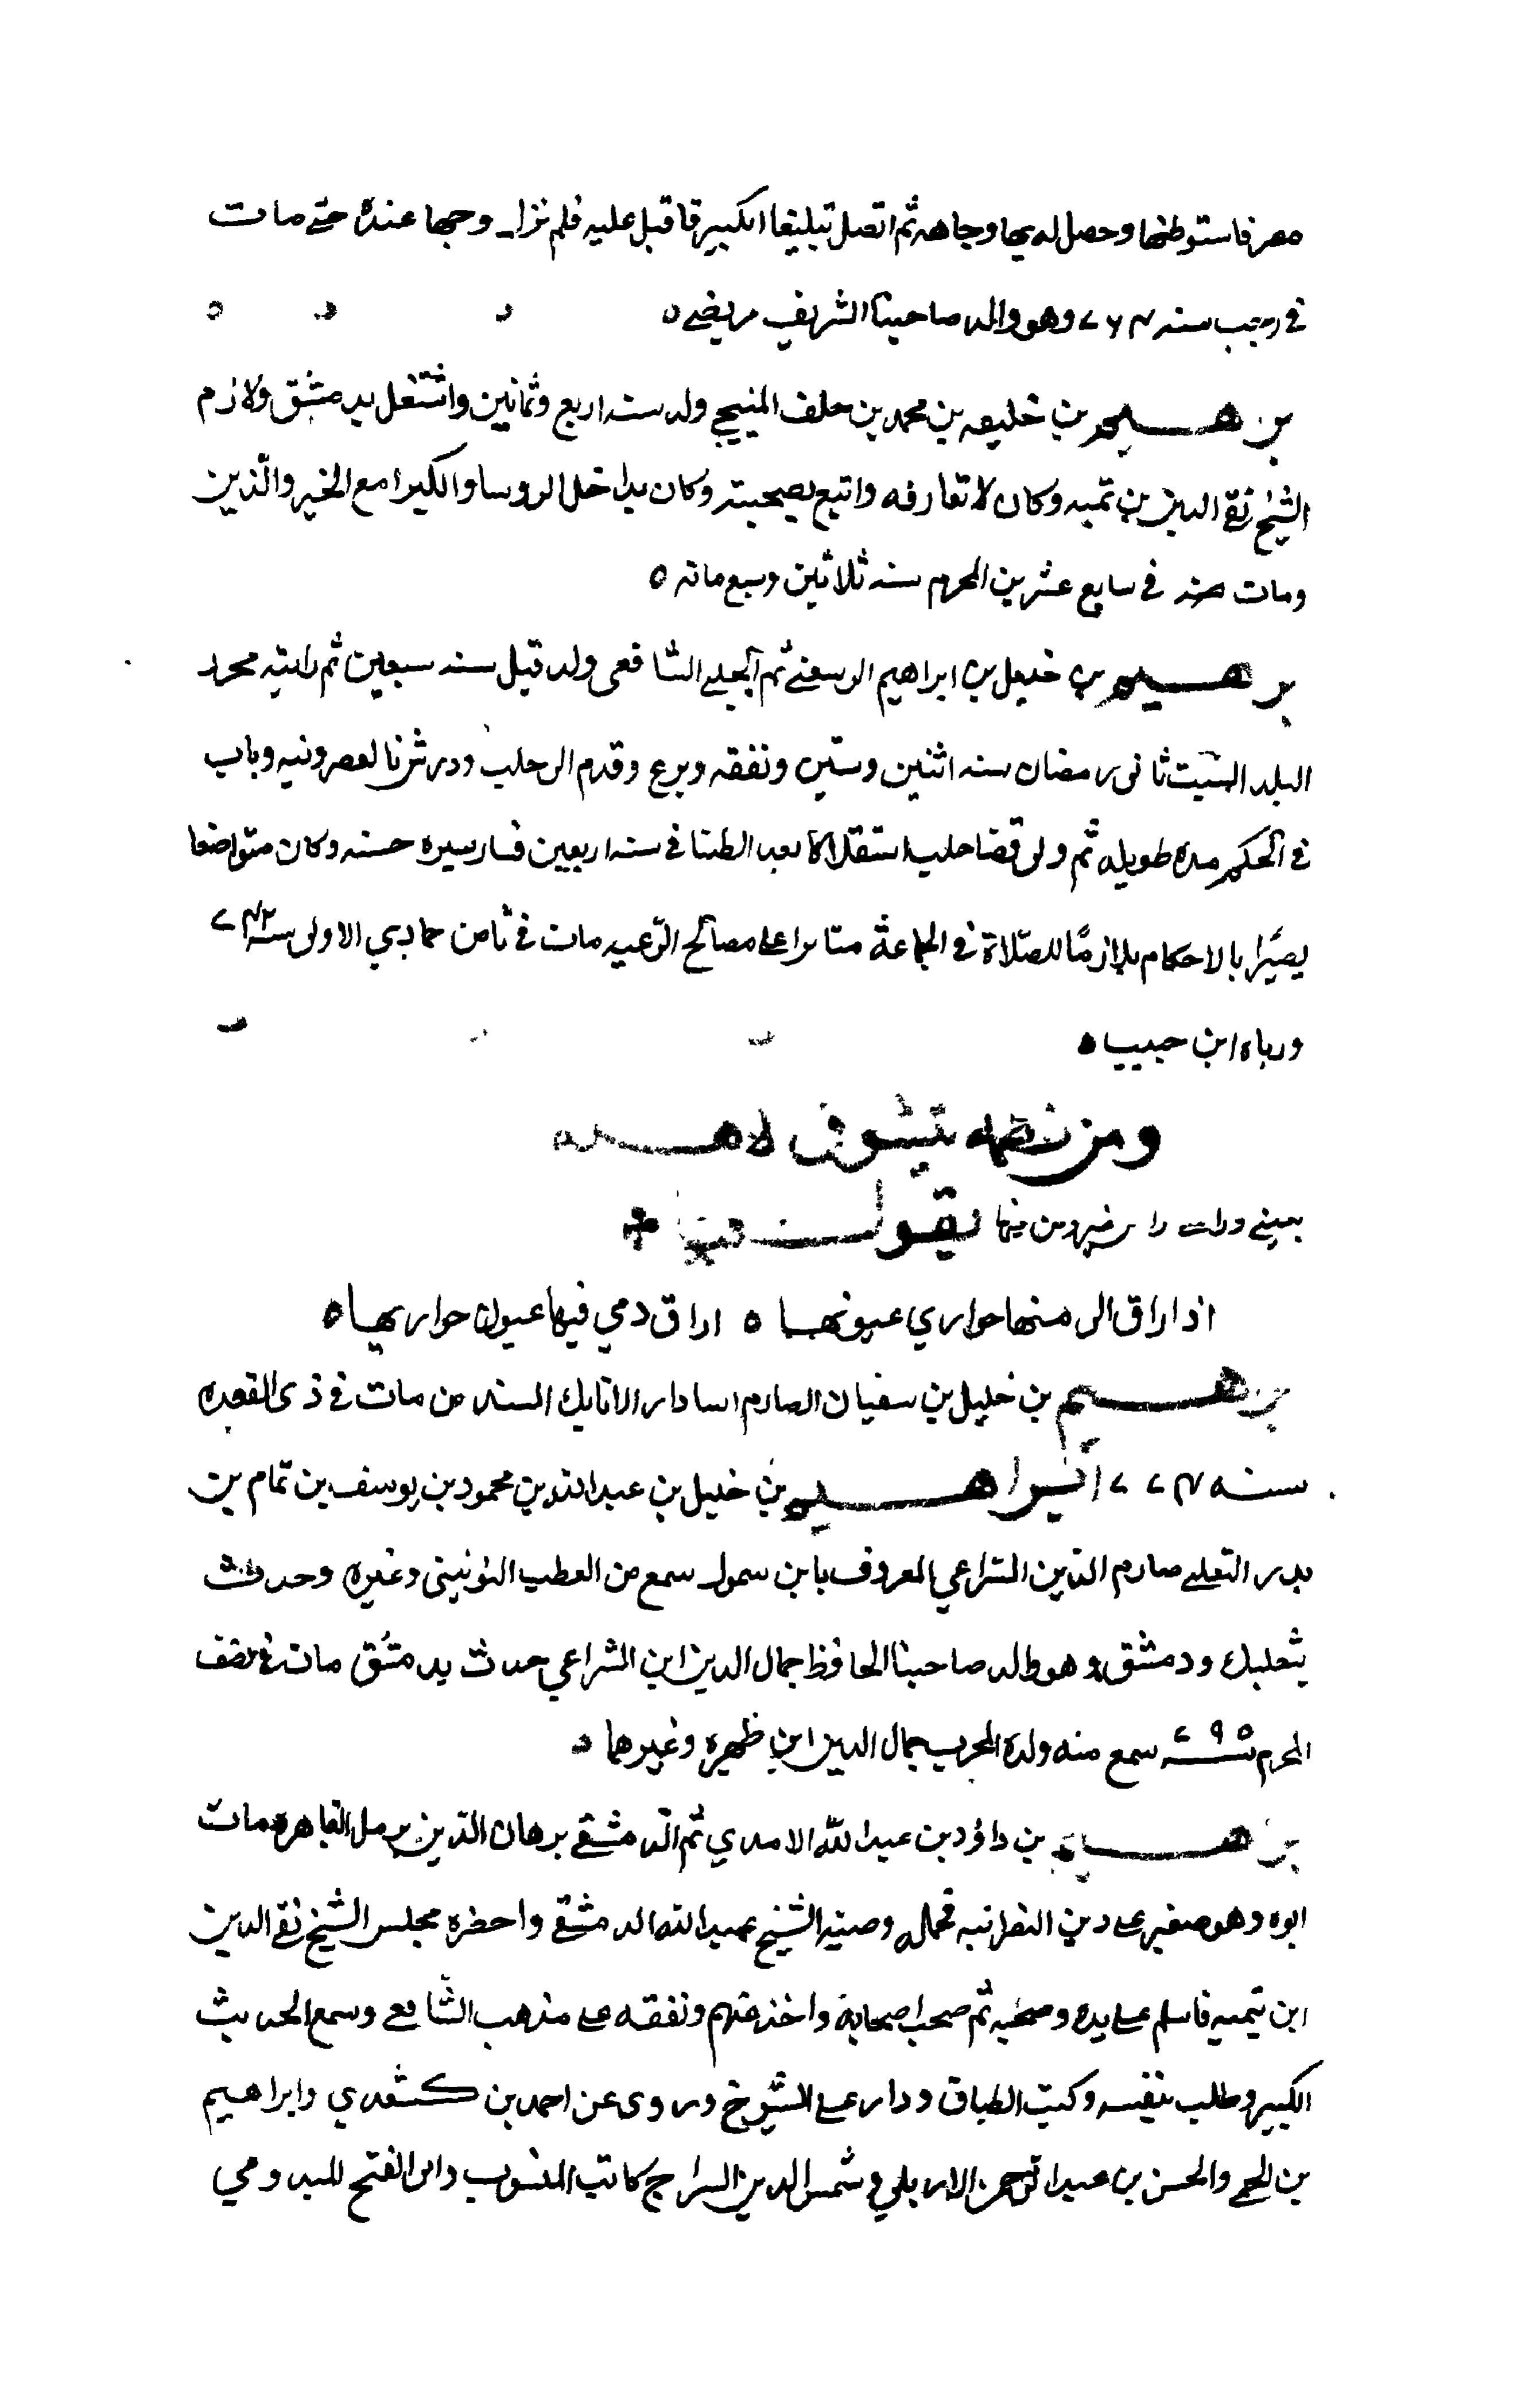 مصر فاستوطنها وحصل له بها وجاهه ثم اتصل تبليغا الكبير فاقبل عليه فلم نزل وجيها عنده حتى مات
في رجب سنه ٧٦٣ وهو والد صاحبنا الشريف مريضي ه
برهيم بن خليفه بن محمد بن خلف المنبجي ولد سنه اربع وثمانين واشتغل بدمشق ولازم
الشيخ تقي الدين بن تميه وكان لا تفارفه واتبع بصحبته وكان يداخل الروسا والكبرا مع الخير والدين
ومات في سابع عشرين المحرم سنه ثلاثين وسبع مائه ه
برهيم بن خليل بن ابراهيم الرسعني ثم الشافعي ولد قبل سنه سبعين ثم
البلد السبت ثاني رمضان سنه اثنين وستين وتفقه وبرع وقدم الى حلب ودرس بالعصرونيه وناب
في الحكم مده طويله ثم ولي قضا حلب استقلالا بعد في سنه اربعين فسار سيره حسنه وكان متواضعا
بصيرا بالاحكام ملازما للصلاة في الجماعة مثابرا على مصالح الرعيه مات في ثامن جمادي الاولى سنه ٧٤٢
ورباه ابن حبيب ه
ومن نظمه يتشوق لاهله
يقول فيها
اذا راق الى منها جواري عيونها ه اراق دمي فيها عيون جواريها ه
برهيم بن خليل بن سفيان الصارم اسادار الاتابك مات في ذي القعده
سنه ٧٧٣ ابراهيم بن خليل بن عبد الله بن محمود بن يوسف بن تمام بن
بدر التعلي صارم الدين الشرايحي المعروف بابن سمول سمع من القطب اليونيني وغيره وحدث
ببعلبك ودمشق وهو والد صاحبنا الحافظ جمال الدين ابن الشراعي حدث بدمشق مات في نصف
المحرم سنه ٧٩٥ سمع منه ولده جمال الدين ابن ظهيره وغيرهما ه
برهيم بن داؤد بن عبد الله الامدي ثم الدمشقي برهان الدين نزيل القاهره مات
ابوه وهو صغير على دين النصرانيه فحمله وصيه الشيخ عبد الله الدمشقي واحضره مجلس الشيخ تقي الدين
ابن تيميه فاسلم على يده وصحبه ثم صحب اصحابه واخذ عنهم وتفقه على مذهب الشافعي وسمع الحديث
الكبير وطلب بنفسه وكتب الطباق ودار على الشيوخ وروى عن احمد بن كشتغدي وابراهيم
بن والحسن بن عبد الرحمن الاربلي و شمس الدين السراج كاتب المنسوب وابي الفتح الميدومي